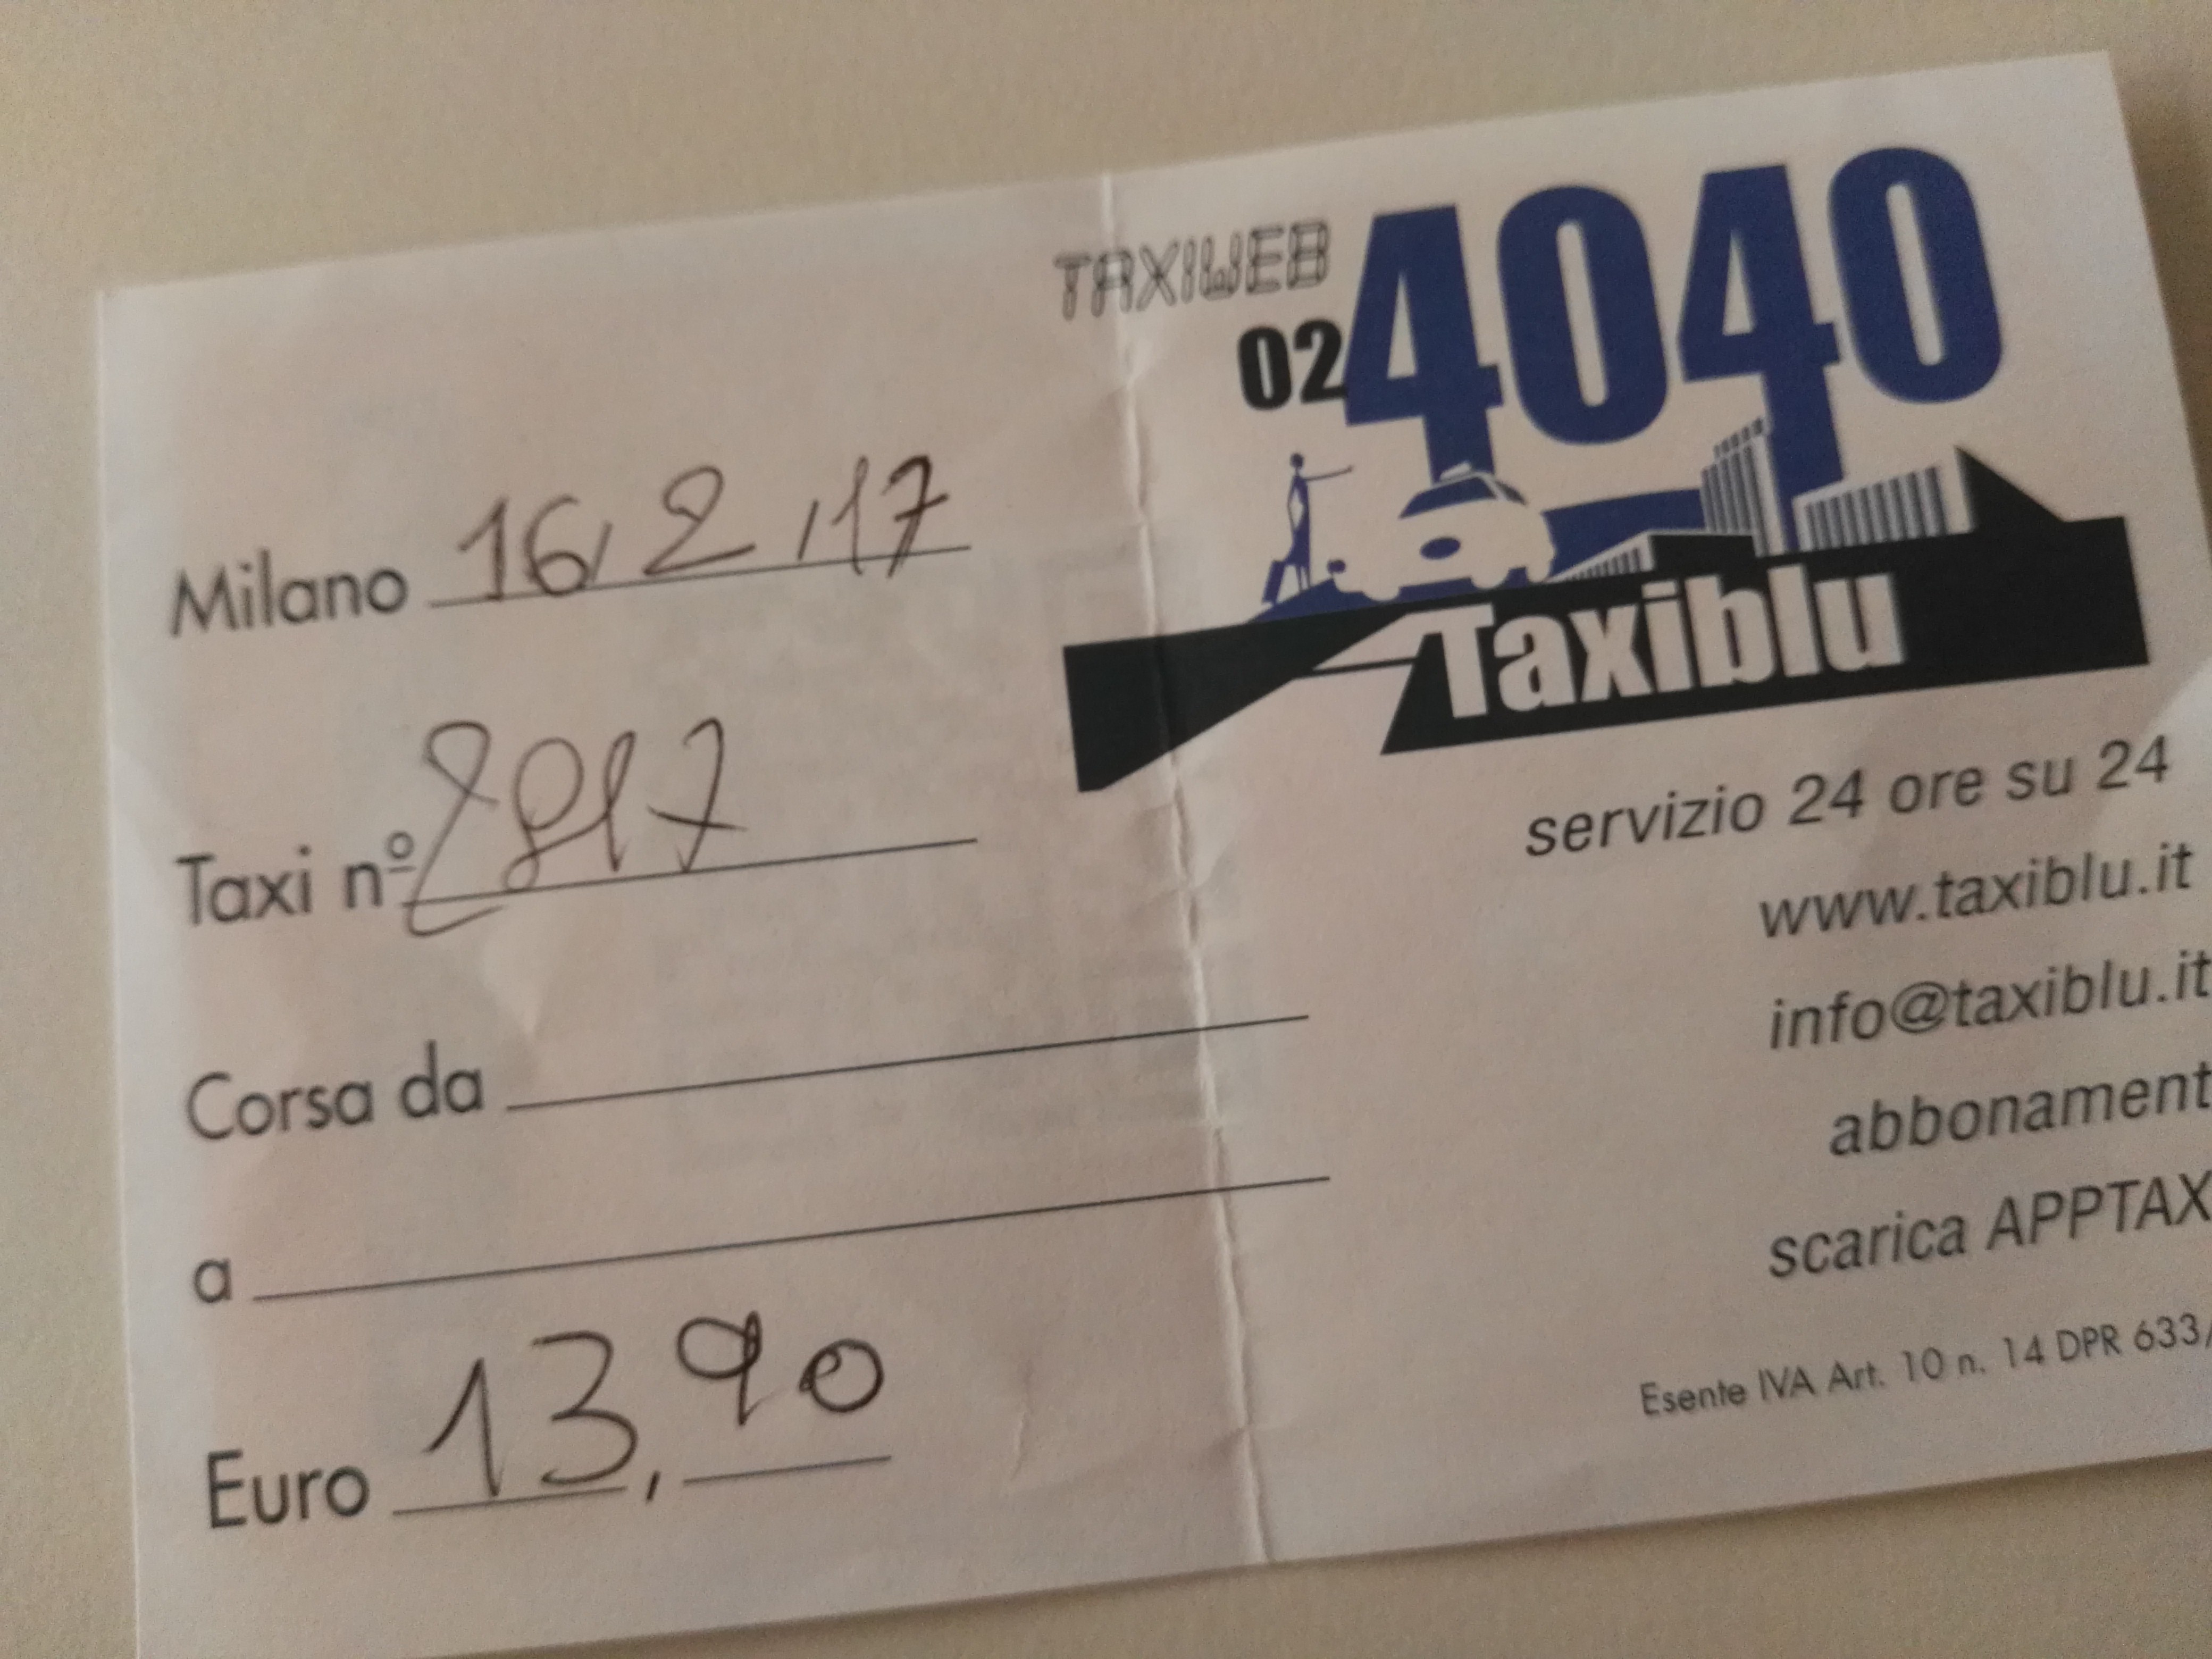 Milano 16/2/17
Taxi nº 2817
Corsa da
a
Euro 13,90
TAXIWEB
024040
Taxiblu
servizio 24 ore su 24
www.taxiblu.it
info@taxiblu.it
abbonament
scarica APPTAX
Esente IVA Art. 10 n. 14 DPR 633/